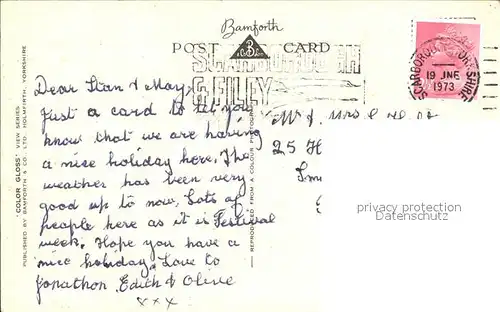 Bamforth
POST CARD
SCARBOROUGH
& FILEY
SCARBOROUGH YORKSHIRE
19 JNE
1973
Dear Stan & May,
Just a card to let you
know that we are having
a nice holiday here. The
weather has been very
good up to now. Lots of
people here as it is Festival
week. Hope you have a
nice holiday. Love to
Jonathon. Edith & Olive
xxx
Mr & Mrs
25 H
privacy protection
Datenschutz
"COLOR GLOSS" VIEW SERIES
PUBLISHED BY BAMFORTH & CO. LTD. HOLMFIRTH, YORKSHIRE
REPRODUCED FROM A COLOUR PHOTOGRAPH